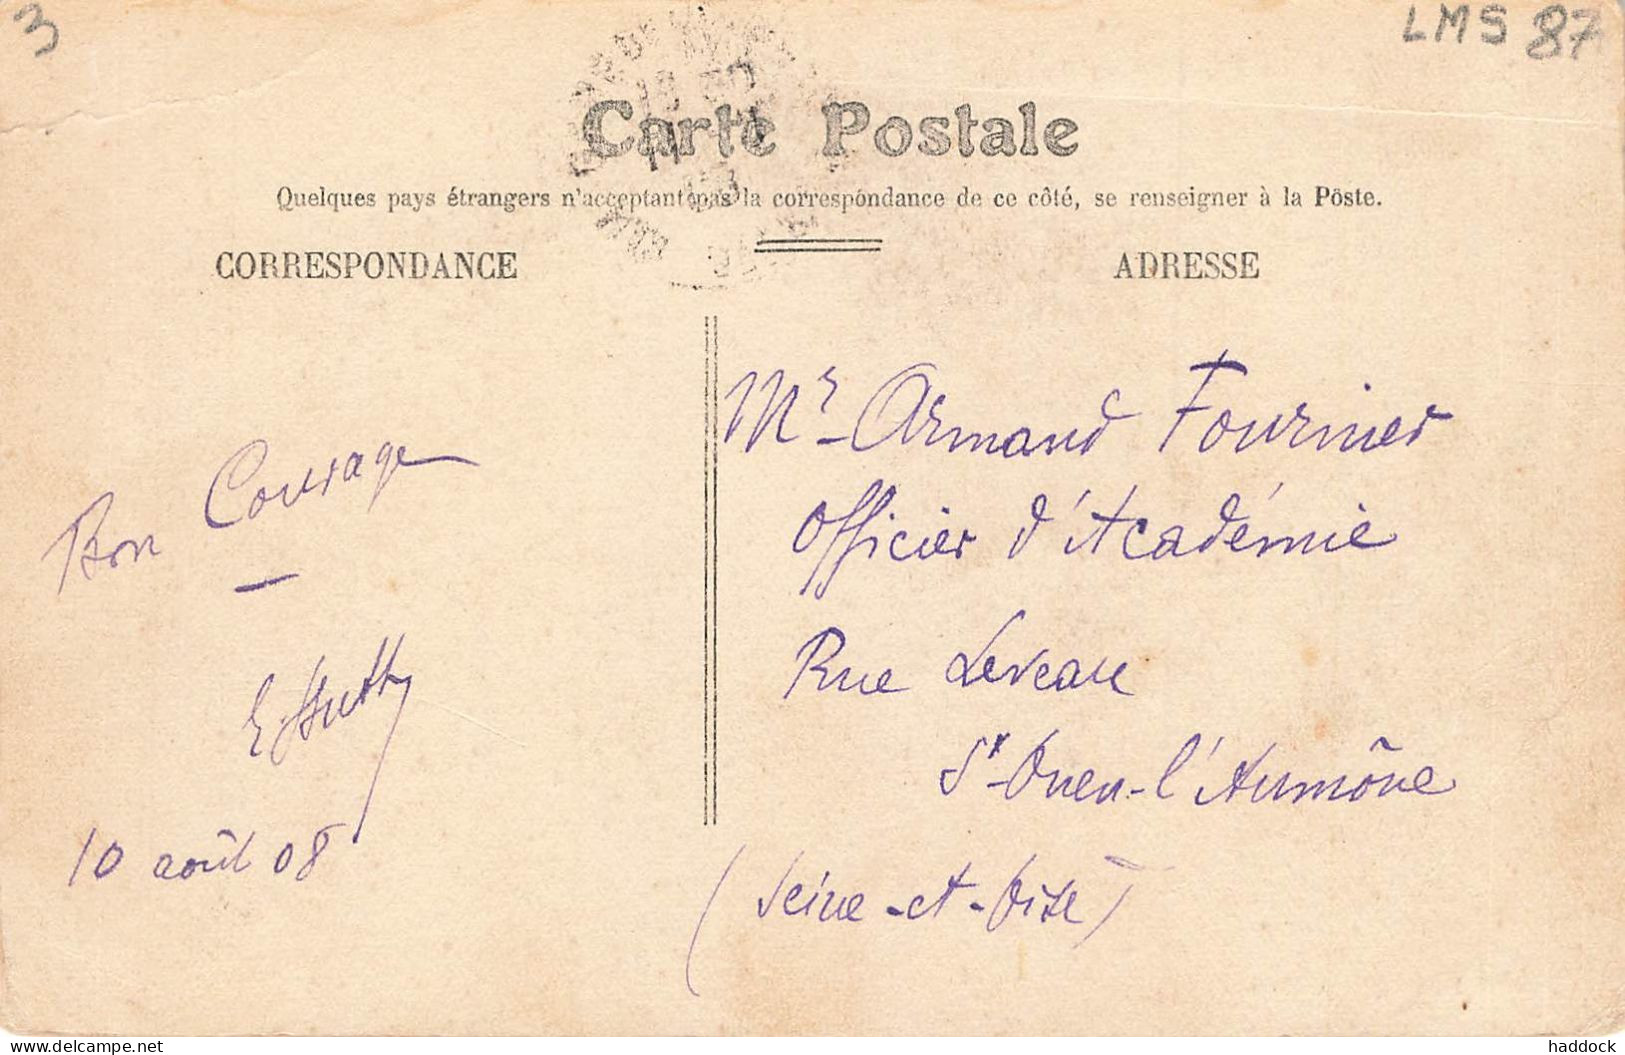 3
LMS 87
Carte Postale
Quelques pays étrangers n'acceptant pas la correspondance de ce côté, se renseigner à la Pöste.
CORRESPONDANCE
ADRESSE
Bon Courage
10 août 08
Mr Armand Fournier
Officier d'Académie
Rue Leveau
St-Ouen-l'Aumône
(Seine-et-Oise)
delcampe.net
haddock